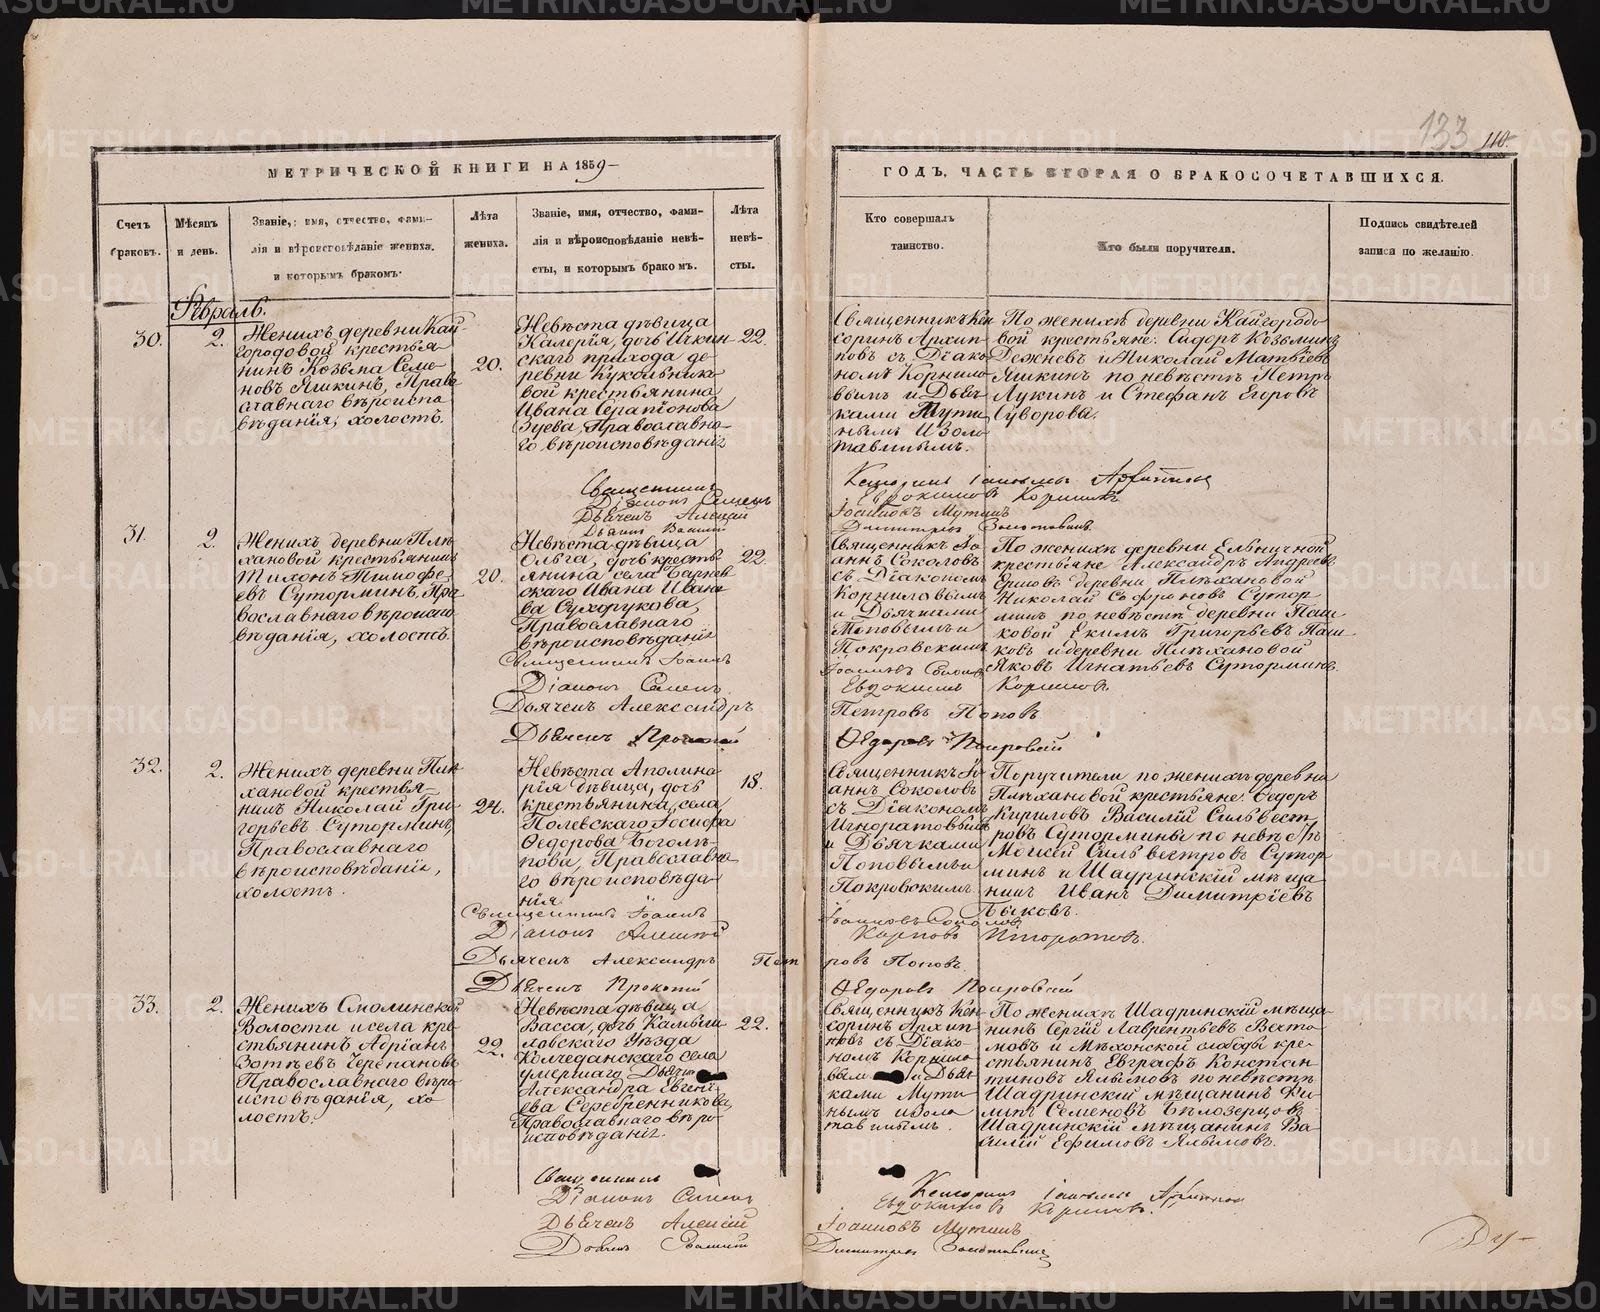 133
110.
МЕТРИЧЕСКОЙ КНИГИ НА 1859
ГОДЪ, ЧАСТЬ ВТОРАЯ О БРАКОСОЧЕТАВШИХСЯ.
Счетъ
браковъ.
Мѣсяцъ
и день.
Званіе, имя, отчество, фами-
лія и вѣроисповѣданіе жениха.
и которымъ бракомъ.
Лѣта
жениха.
Званіе, имя, отчество, фами-
лія и вѣроисповѣданіе невѣ-
сты, и которымъ бракомъ.
Лѣта
невѣ-
сты.
Кто совершалъ
таинство.
Кто были поручители.
Подпись свидѣтелей
записи по желанію.
Февраль.
30.
2.
Женихъ деревни Кай-
городовой крестья-
нинъ Козьма Семе-
новъ Яшкинъ, Право
славнаго вѣроиспо
вѣданія, холостъ.
20.
Невѣста дѣвица
Калерія, дочь Ичкин
скаго прихода де-
ревни Куксивника
вой крестьянина
Ивана Серапіонова
Зуева, Православна-
го вѣроисповѣданія
22.
Священникъ Кен
соринъ Архип
повъ съ Діако
номъ Корнило
вымъ и Дьяч
ками Мути
нымъ и Золо
тавинымъ.
По женихѣ деревни Кайгородо
вой крестьяне: Сидоръ Козьминъ
Дежневъ и Николай Матвѣевъ
Яшкинъ по невѣстѣ Петръ
Лукинъ и Стефанъ Егоровъ
Суворова.
Священникъ
Діаконъ Семенъ
Дьячекъ Алексѣй
31.
2.
Женихъ деревни Плѣ
хановой крестьянинъ
Тихонъ Тимофе
евъ Суторминъ, Пра
вославнаго вѣроиспо
вѣданія, холостъ.
20.
Невѣста дѣвица
Ольга, дочь кресть
янина села Барнев
скаго Ивана Ивано
ва Сухорукова,
Православнаго
вѣроисповѣданія
22.
Священникъ Іо
аннъ Соколовъ
съ Діакономъ
Корниловымъ
и Дьячками
Поповымъ и
Покровскимъ
По женихѣ деревни Ельничной
крестьяне Александръ Андреевъ
Ершовъ деревни Плѣхановой
Николай Софроновъ Сутор
минъ по невѣстѣ деревни Паш
ковой Екимъ Григорьевъ Паш
ковъ и деревни Плѣхановой
Яковъ Игнатьевъ Суторминъ.
Священникъ Іоаннъ
Діаконъ Семенъ
Евдокимовъ Корниловъ
Дьячекъ Александръ
Петровъ Поповъ.
Дьячекъ Прокопій
Ѳедоровъ Покровскій
32.
2.
Женихъ деревни Плѣ
хановой крестья-
нинъ Николай Гри
горьевъ Суторминъ,
Православнаго
вѣроисповѣданія,
холостъ.
24.
Невѣста Аполина
рія дѣвица, дочь
крестьянина, села
Полевскаго Іосифа
Ѳедорова Боголѣ
пова, Православна
го вѣроисповѣда-
нія.
18.
Священникъ Іо
аннъ Соколовъ
съ Діакономъ
Игноратовымъ
и Дьячками
Поповымъ и
Покровскимъ
Поручители по женихѣ деревни
Плѣхановой крестьяне: Ѳедоръ
Кириловъ Василій Сильвест
ровъ Суторминъ по невѣстѣ
Моисей Сильвестровъ Сутор
минъ и Шадринскій мѣща
нинъ Иванъ Димитріевъ
Быковъ.
Священникъ Іоаннъ
Іоанновъ Соколовъ
Діаконъ Алексѣй
Дьячекъ Александръ Пет
ровъ Поповъ.
Дьячекъ Прокопій
Ѳедоровъ Покровскій
33.
2.
Женихъ Смолинской
Волости и села кре
стьянинъ Адріанъ
Зотѣевъ Черепановъ
Православнаго вѣро
исповѣданія, хо
лостъ.
22.
Невѣста дѣвица
Васса, дочь Камыш
ловскаго Уѣзда
Колчеданскаго села
умершаго Дьячка
Александра Евгені
ева Серебренникова,
Православнаго вѣро
исповѣданія.
22.
Священникъ Кен
соринъ Архип
повъ съ Діако-
номъ Корнило
вымъ и Дьяч
ками Мути
нымъ и Золо
тавинымъ.
По женихѣ Шадринскій мѣща-
нинъ Сергій Лаврентьевъ Вато
мовъ и Мѣхонской слободы кре-
стьянинъ Евграфъ Констан
тиновъ Ялымовъ по невѣстѣ
Шадринскій мѣщанинъ Фи-
липъ Семеновъ Бѣлозерцовъ
Шадринскій мѣщанинъ Ва-
силій Ефимовъ Ялымовъ.
Священникъ
Діаконъ Семенъ
Евдокимовъ Корниловъ.
Дьячекъ Алексѣй
Іоанновъ Мутинъ
METRIKI.GASO-URAL.RU